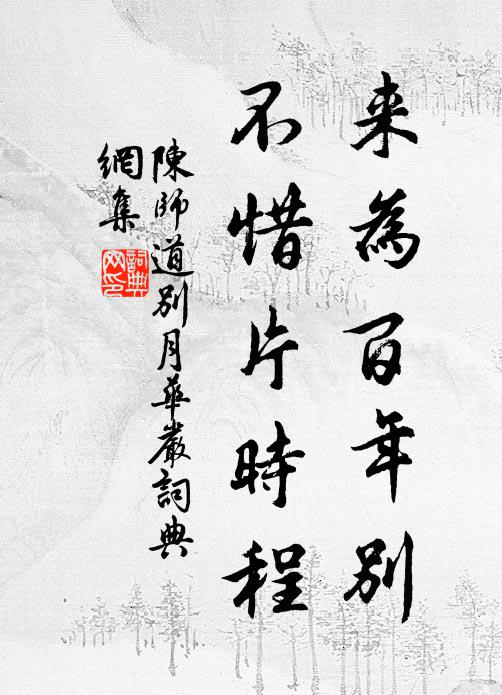 来為百年別
不惜片時程
陳師道別月華嚴詞典
網集
詞典
网印